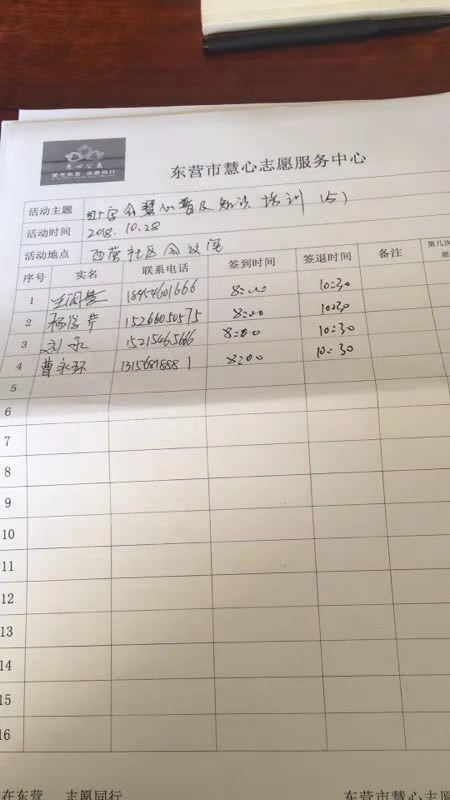 慧心公益
爱在东营 志愿同行
东营市慧心志愿服务中心
活动主题 红十字会慧心普及知识培训(5)
活动时间 2018.10.28
活动地点 西营社区会议室
序号 实名 联系电话 签到时间 签退时间 备注 第几次
1 18454601666 8:00 10:30
2 15266050575 8:00 10:30
3 刘永 15215465666 8:00 10:30
4 曹永环 13156818881 8:00 10:30
5
6
7
8
9
10
11
12
13
14
15
16
在东营 志愿同行 东营市慧心志愿